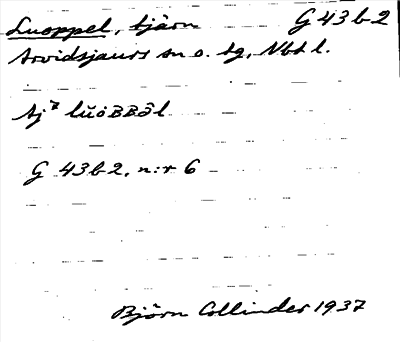 Luoppel, tjärn G 43 b 2
Arvidsjaurs sn o. tg, Nbt l.
lŭòBBĕ̮l
G 43 b 2, n:r 6
Björn Collinder 1937